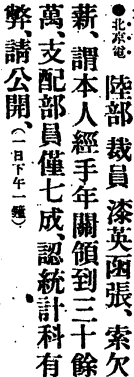 ●北京電 陸部裁員漆英函張、索欠
薪、謂本人經手年關領到三十餘
萬、支配部員僅七成、認統計科有
弊、請公開、(一日下午一鐘)